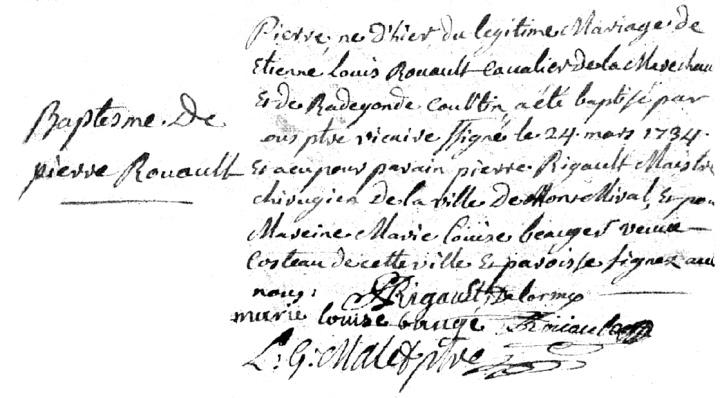 Baptesme De
pierre Rouault
Pierre, ne d'hier, du legitime Mariage de
Etienne Louis Rouault Cavalier de la Marechau
Et de Radegonde Coultin, a été baptisé par
ous ptre vicaire ssigné le 24. mars 1734.
Et a eu pour parain pierre Rigault Maistre
chirugien de la ville de Mont Mirail, Et pou
Mareine Marie Louise beauger veuve
Costeau de cette ville Et paroisse signez avec
nous:
Rigault Delormes
marie louise baugé Rouault
L. G. Malet ptre